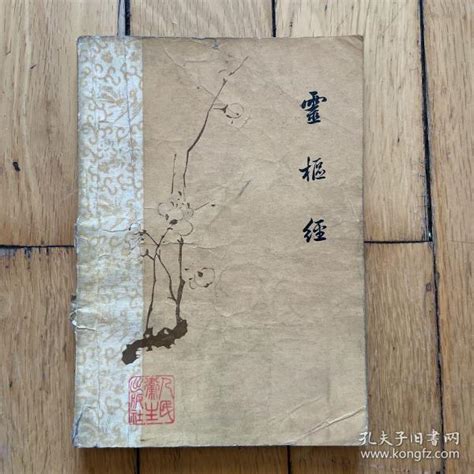 靈樞經
人民
衛生
出版社
孔夫子旧书网
www.kongfz.com